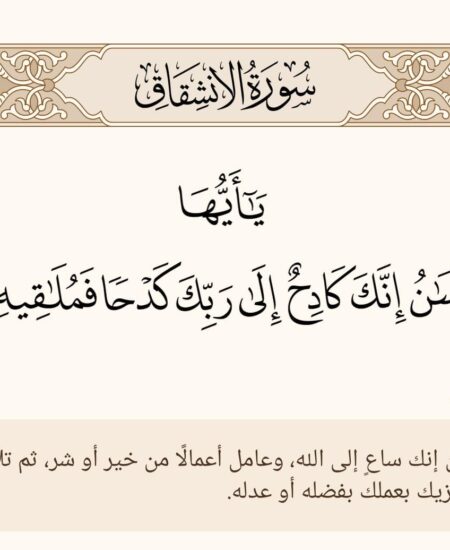 سُورَةُ الانشِقَاقِ
يَٰٓأَيُّهَا
إِنَّكَ كَادِحٌ إِلَىٰ رَبِّكَ كَدْحًا فَمُلَٰقِيهِ
إنك ساعٍ إلى الله، وعامل أعمالًا من خير أو شر، ثم
بعملك بفضله أو عدله.